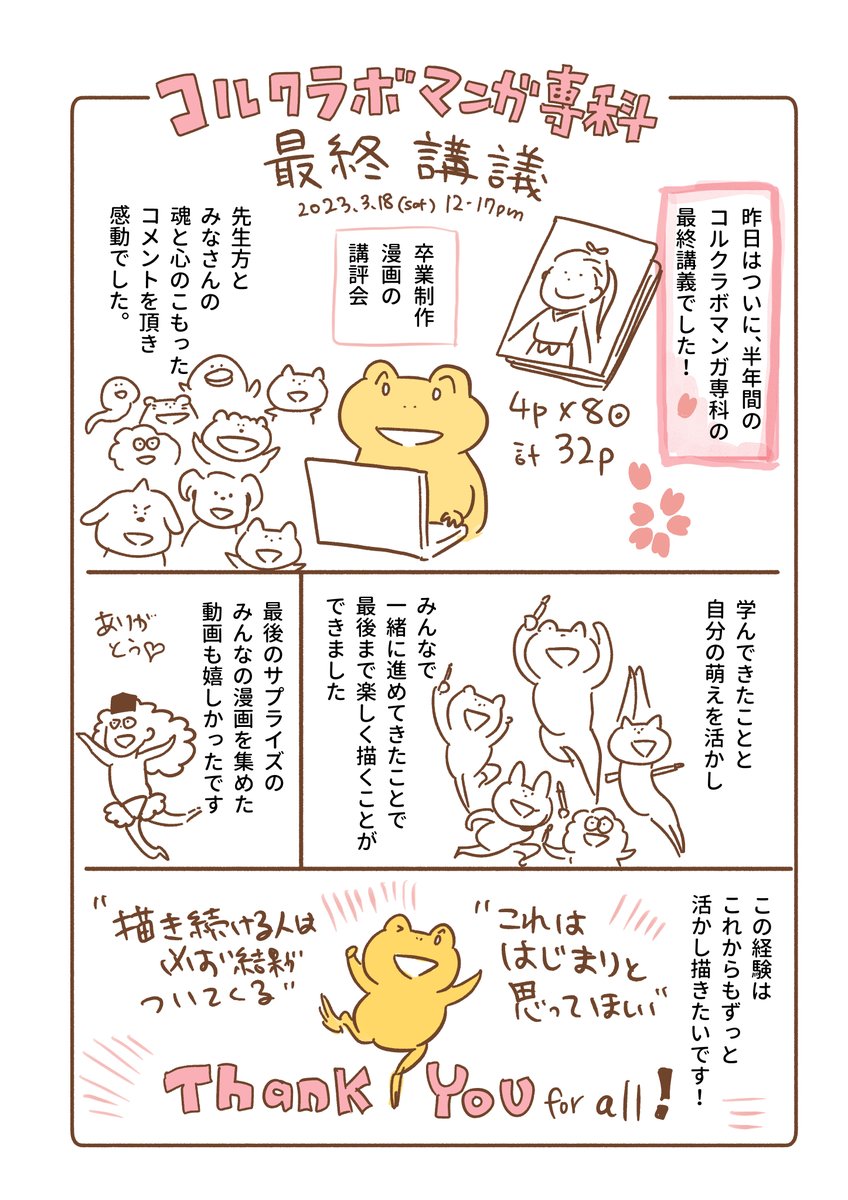 コルクラボマンガ専科
最終講議
2023.3.18(sat) 12-17pm
昨日はついに、半年間の
コルクラボマンガ専科の
最終講義でした！
4p×80
計 32p
卒業制作
漫画の
講評会
先生方と
みなさんの
魂と心のこもった
コメントを頂き
感動でした。
学んできたことと
自分の萌えを活かし
みんなで
一緒に進めてきたことで
最後まで楽しく描くことが
できました
最後のサプライズの
みんなの漫画を集めた
動画も嬉しかったです
ありが
とう♡
この経験は
これからもずっと
活かし描きたいです！
"これは
はじまりと
思ってほしい"
"描き続ける人は
必ず結果が
ついてくる"
Thank You for all!